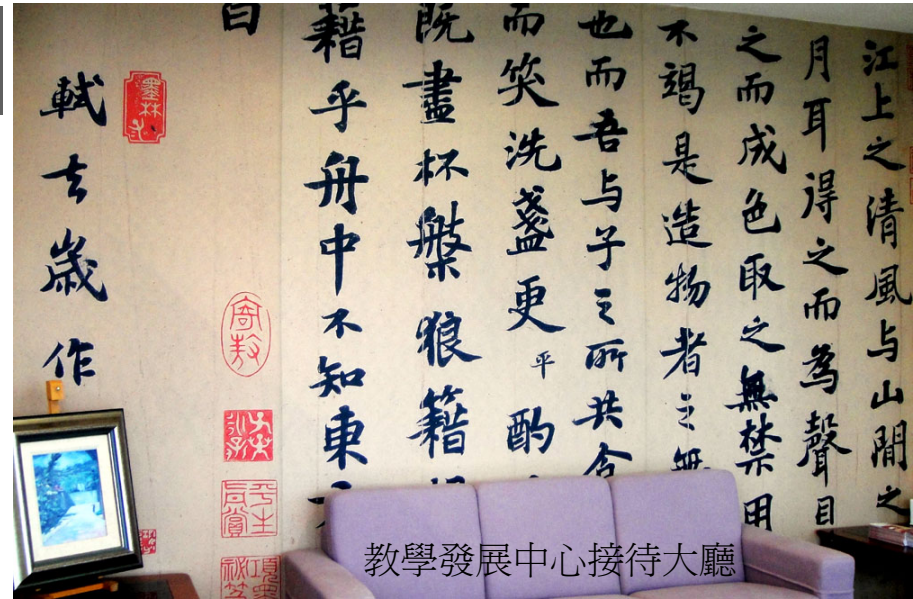 江上之清風与山間之
月耳得之而為聲目
之而成色取之無禁用
不竭是造物者之無
也而吾与子之所共食
而笑洗盞更平酌
既盡杯槃狼籍
籍乎舟中不知東
白
軾去歲作
墨林
平生真賞
教學發展中心接待大廳